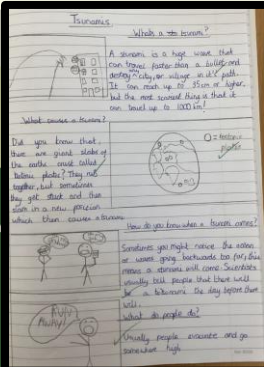 Tsunamis.
What's a tsunami?
A tsunami is a huge wave that
can travel faster than a bullet and
destroy any city, or village in it's path.
It can reach up to 35m or higher,
but the most scariest thing is that it
can travel up to 1000 km!
What causes a tsunami?
Did you know that,
there are giant slabs of
the earths crust called
Tectonic plates? They rub
together, but sometimes
they get stuck and then
slam in a new position
which then causes a tsunami
O = tectonic
plates
How do you know when a tsunami comes?
Sometimes you might notice the ocean
or waves going backwards too far, this
means a tsunami will come. Scientists
usually tell people that there will
be a tsunami the day before there
will.
What do people do?
Usually people evacuate and go
somewhere high
RUN
AWAY!